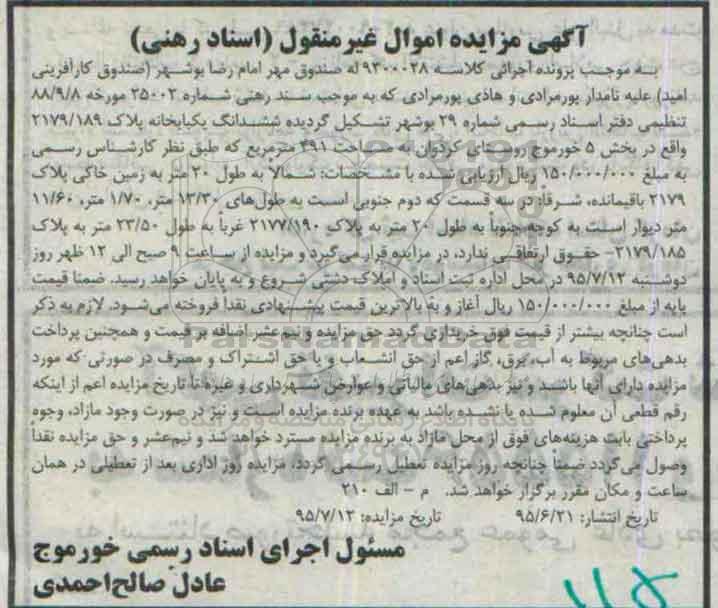 آگهی مزایده اموال غیرمنقول (اسناد رهنی)
به موجب پرونده اجرائی کلاسه ۹۳۰۰۰۲۸ له صندوق مهر امام رضا بوشهر (صندوق کارآفرینی
امید) علیه نامدار پورمرادی و هادی پورمرادی که به موجب سند رهنی شماره ۲۵۰۰۲ مورخه ۸۸/۹/۸
تنظیمی دفتر اسناد رسمی شماره ۲۹ بوشهر تشکیل گردیده ششدانگ یکبابخانه پلاک ۲۱۷۹/۱۸۹
واقع در بخش ۵ خورموج روستای کردوان به مساحت ۴۹۱ مترمربع که طبق نظر کارشناس رسمی
به مبلغ ۱۵۰/۰۰۰/۰۰۰ ریال ارزیابی شده با مشخصات: شمالاً به طول ۲۰ متر به زمین خاکی پلاک
۲۱۷۹ باقیمانده، شرقاً: در سه قسمت که دوم جنوبی است به طول‌های ۱۳/۳۰ متر، ۱/۷۰ متر، ۱۱/۶۰
متر دیوار است به کوچه جنوباً به طول ۲۰ متر به پلاک ۲۱۷۷/۱۹۰ غرباً به طول ۲۳/۵۰ متر به پلاک
۲۱۷۹/۱۸۵- حقوق ارتفاقی ندارد، در مزایده قرار می‌گیرد و مزایده از ساعت ۹ صبح الی ۱۲ ظهر روز
دوشنبه ۹۵/۷/۱۲ در محل اداره ثبت اسناد و املاک دشتی شروع و به پایان خواهد رسید. ضمنا قیمت
پایه از مبلغ ۱۵۰/۰۰۰/۰۰۰ ریال آغاز و به بالاترین قیمت پیشنهادی نقداً فروخته می‌شود. لازم به ذکر
است چنانچه بیشتر از قیمت فوق خریداری گردد حق مزایده و نیم‌عشر اضافه بر قیمت و همچنین پرداخت
بدهی‌های مربوط به آب، برق، گاز اعم از حق انشعاب و یا حق اشتراک و مصرف در صورتی که مورد
مزایده دارای آنها باشد و نیز بدهی‌های مالیاتی و عوارض شهرداری و غیره تا تاریخ مزایده اعم از اینکه
رقم قطعی آن معلوم شده یا نشده باشد به عهده برنده مزایده است و نیز در صورت وجود مازاد، وجوه
پرداختی بابت هزینه‌های فوق از محل مازاد به برنده مزایده مسترد خواهد شد و نیم‌عشر و حق مزایده نقداً
وصول می‌گردد ضمناً چنانچه روز مزایده تعطیل رسمی گردد، مزایده روز اداری بعد از تعطیلی در همان
ساعت و مکان مقرر برگزار خواهد شد. م - الف ۲۱۰
تاریخ انتشار: ۹۵/۶/۲۱ تاریخ مزایده: ۹۵/۷/۱۲
مسئول اجرای اسناد رسمی خورموج
عادل صالح‌احمدی